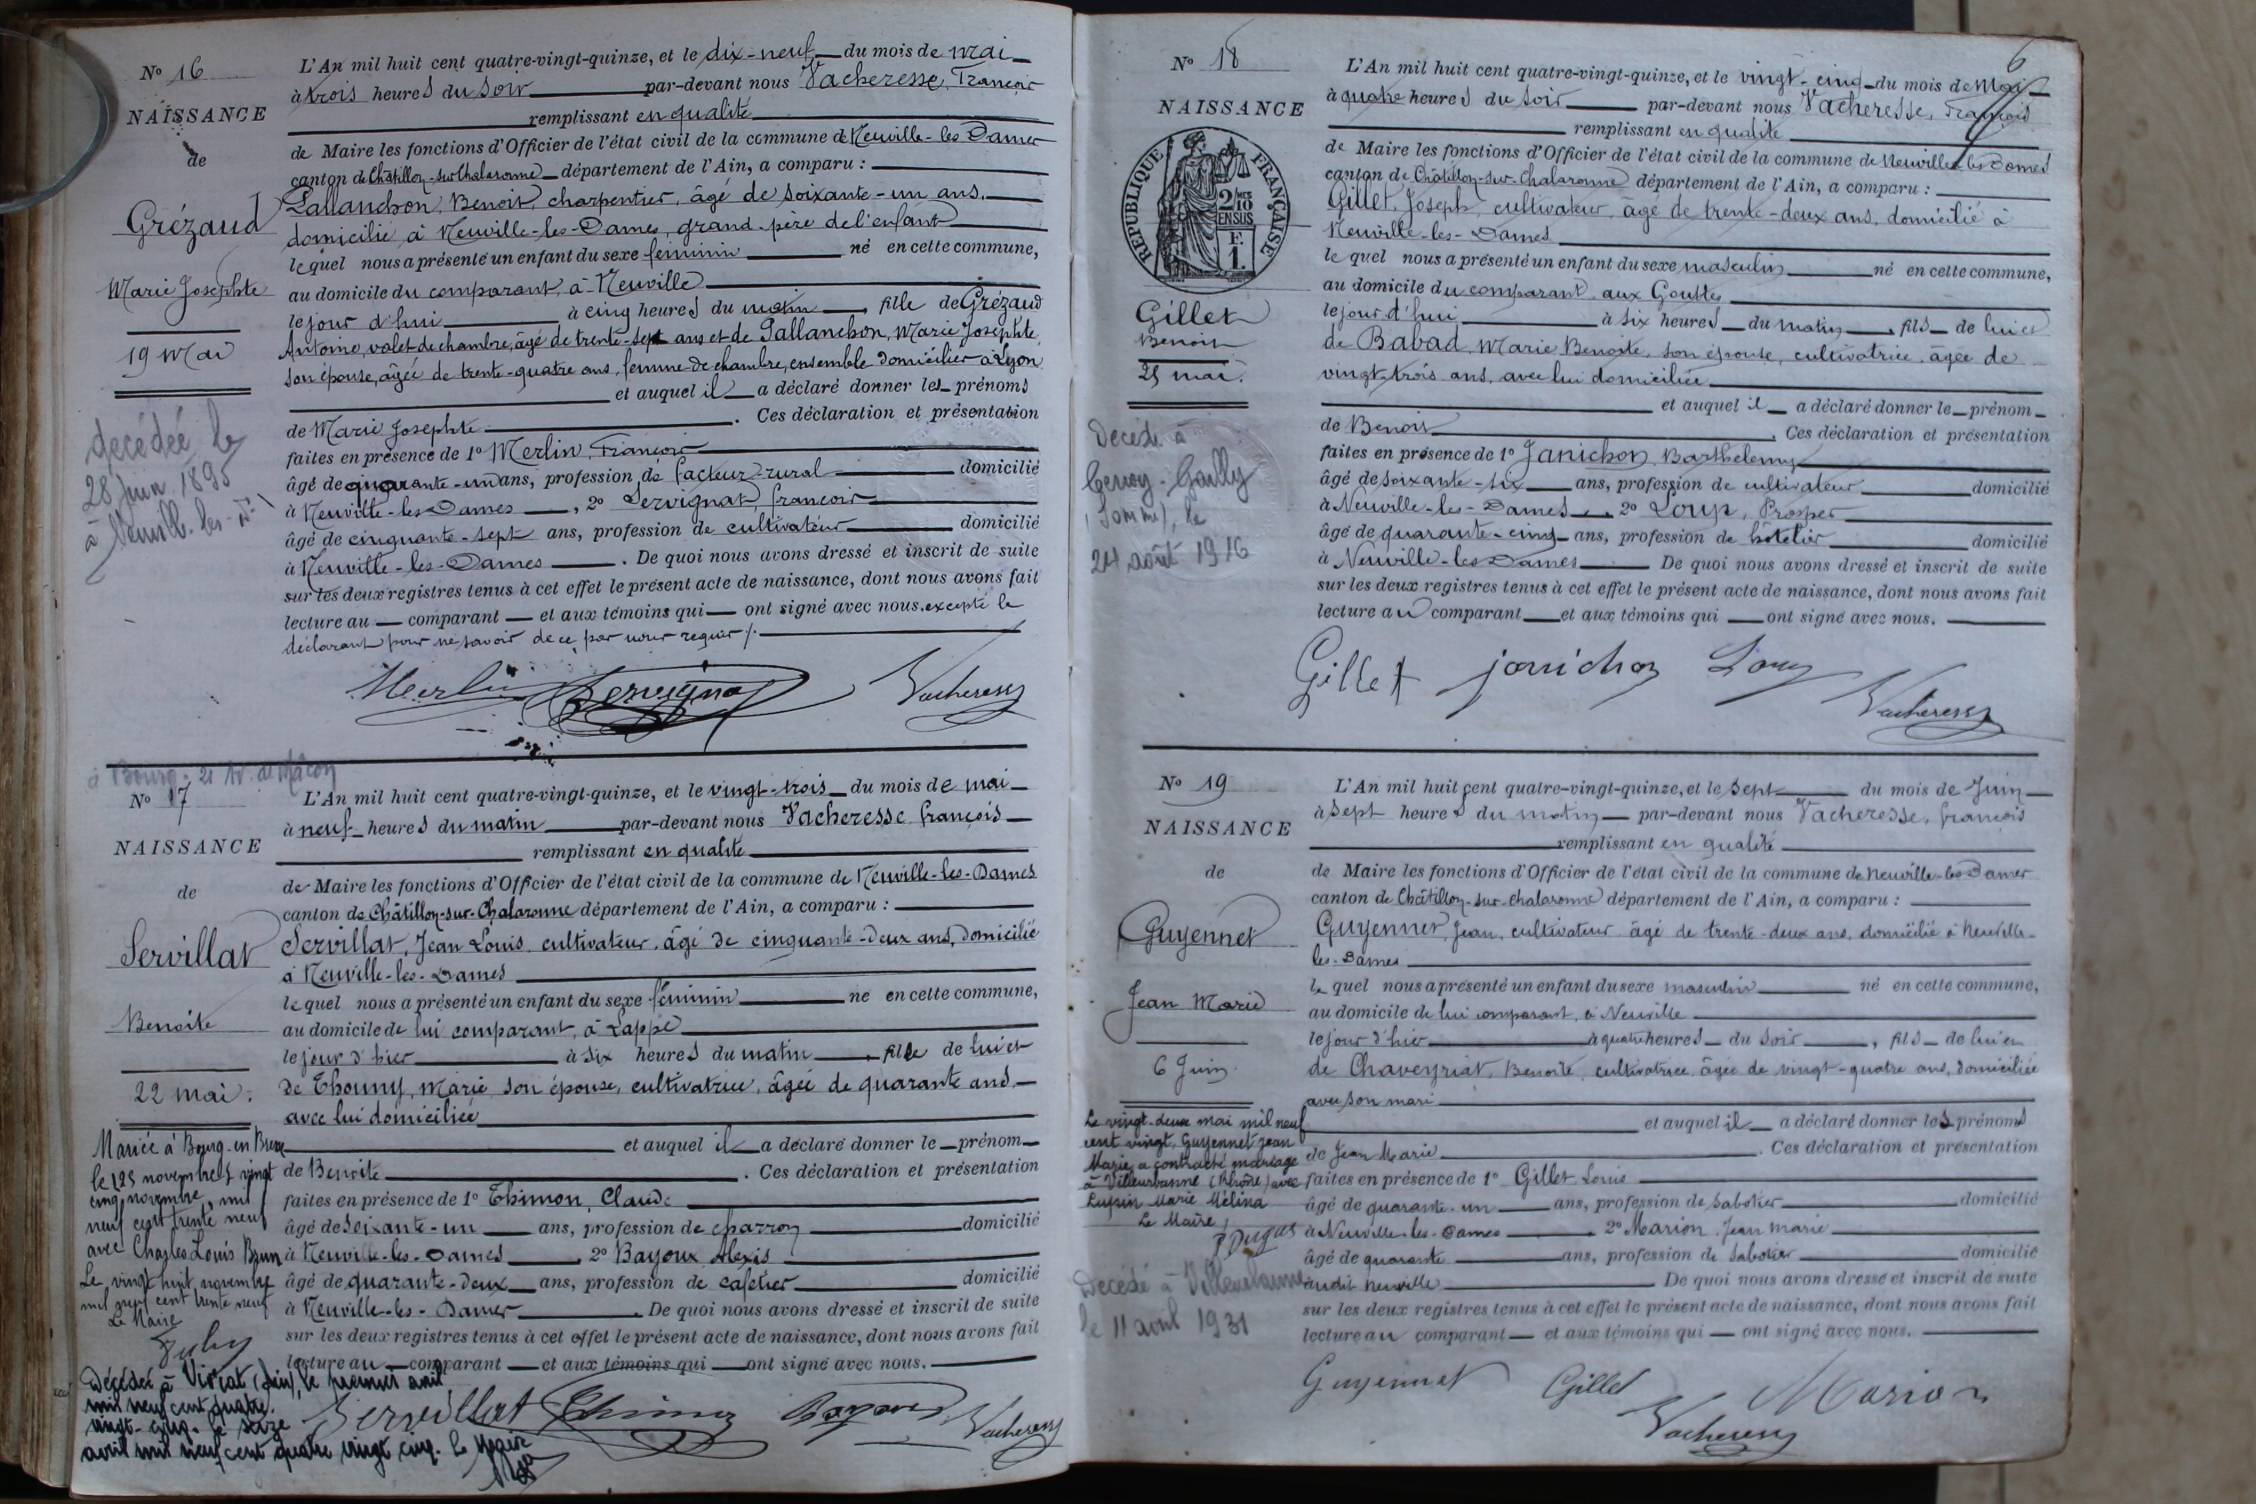 Nº 16
NAISSANCE
de
Grézaud
Marie Josephte
19 Mai
decédée le
28 Juin 1895
à Neuville-les-D
L'An mil huit cent quatre-vingt-quinze, et le dix-neuf du mois de Mai
à trois heures du soir par-devant nous Vacheresse, François
remplissant en qualité
de Maire les fonctions d'Officier de l'état civil de la commune de Neuville-les-Dames
canton de Châtillon-sur-Chalaronne département de l'Ain, a comparu :
Lallanchon, Benoit, charpentier, âgé de soixante-un ans,
domicilié à Neuville-les-Dames, grand-père de l'enfant
lequel nous a présenté un enfant du sexe féminin né en cette commune,
au domicile du comparant, à Neuville
le jour d'hui à cinq heures du matin, fille de Grézaud
Antoine, valet de chambre, âgé de trente-sept ans et de Lallanchon, Marie Josephte,
son épouse, âgée de trente-quatre ans, femme de chambre, ensemble domiciliés à Lyon
et auquel il a déclaré donner les prénoms
de Marie Josephte. Ces déclaration et présentation
faites en présence de 1º Merlin, François
âgé de quarante-un ans, profession de facteur-rural domicilié
à Neuville-les-Dames, 2º Servignat, françois
âgé de cinquante-sept ans, profession de cultivateur domicilié
à Neuville-les-Dames. De quoi nous avons dressé et inscrit de suite
sur les deux registres tenus à cet effet le présent acte de naissance, dont nous avons fait
lecture au comparant et aux témoins qui ont signé avec nous, excepté le
déclarant pour ne savoir de ce par nous requis /.
Merlin Servignat Vacheresse
à Bourg. 21 Av. de Mâcon
Nº 17
NAISSANCE
de
Servillat
Benoite
22 mai.
Mariée à Bourg-en-Bresse
le 25 novembre vingt
cinq novembre, mil
neuf cent trente neuf
avec Charles Louis Brun
Le vingt huit novembre
mil neuf cent trente neuf
Le Maire
L'An mil huit cent quatre-vingt-quinze, et le vingt-trois du mois de mai
à neuf heures du matin par-devant nous Vacheresse, françois
remplissant en qualité
de Maire les fonctions d'Officier de l'état civil de la commune de Neuville-les-Dames
canton de Châtillon-sur-Chalaronne département de l'Ain, a comparu :
Servillat, Jean Louis, cultivateur, âgé de cinquante-deux ans, domicilié
à Neuville-les-Dames
lequel nous a présenté un enfant du sexe féminin né en cette commune,
au domicile de lui comparant, à Lappe
le jour d'hier à six heures du matin, fille de lui et
de Thouny, Marie son épouse, cultivatrice, âgée de quarante ans
avec lui domiciliée
et auquel il a déclaré donner le prénom
de Benoite. Ces déclaration et présentation
faites en présence de 1º Thimon, Claude
âgé de soixante-un ans, profession de charron domicilié
à Neuville-les-Dames, 2º Bayoux Alexis
âgé de quarante-deux ans, profession de cafetier domicilié
à Neuville-les-Dames. De quoi nous avons dressé et inscrit de suite
sur les deux registres tenus à cet effet le présent acte de naissance, dont nous avons fait
lecture au comparant et aux témoins qui ont signé avec nous.
Décédée à Viriat (Ain), le premier avril
mil neuf cent quatre
vingt-cinq. Le seize
avril mil neuf cent quatre vingt cinq. Le Maire
Servillat Thimon Bayoux Vacheresse
Nº 18
6
NAISSANCE
REPUBLIQUE FRANÇAISE
2/10
EN SUS
F.
1.
Gillet
Benoit
25 mai.
Décédé à
Gailly
(Somme), le
24 août 1916
L'An mil huit cent quatre-vingt-quinze, et le vingt-cinq du mois de Mai
à quatre heures du soir par-devant nous Vacheresse, François
remplissant en qualité
de Maire les fonctions d'Officier de l'état civil de la commune de Neuville-les-Dames
canton de Châtillon-sur-Chalaronne département de l'Ain, a comparu :
Gillet, Joseph, cultivateur, âgé de trente-deux ans, domicilié à
Neuville-les-Dames
lequel nous a présenté un enfant du sexe masculin né en cette commune,
au domicile du comparant, aux Gouttes
le jour d'hui à six heures du matin, fils de lui et
de Babad, Marie Benoite, son épouse, cultivatrice, âgée de
vingt-trois ans, avec lui domiciliée
et auquel il a déclaré donner le prénom
de Benoit. Ces déclaration et présentation
faites en présence de 1º Janichon, Barthelemy
âgé de soixante-six ans, profession de cultivateur domicilié
à Neuville-les-Dames, 2º Loup, Prosper
âgé de quarante-cinq ans, profession de hôtelier domicilié
à Neuville-les-Dames De quoi nous avons dressé et inscrit de suite
sur les deux registres tenus à cet effet le présent acte de naissance, dont nous avons fait
lecture au comparant et aux témoins qui ont signé avec nous.
Gillet janichon Loup
Vacheresse
Nº 19
NAISSANCE
de
Guyennet
Jean Marie
6 Juin.
Le vingt-deux mai mil neuf
cent vingt, Guyennet Jean
Marie a contracté mariage
à Villeurbanne (Rhône) avec
Lupin Marie Mélina
Le Maire,
P Dugas
Décédé à Villeurbanne
le 11 avril 1931
L'An mil huit cent quatre-vingt-quinze, et le sept du mois de Juin
à sept heures du matin par-devant nous Vacheresse, françois
remplissant en qualité
de Maire les fonctions d'Officier de l'état civil de la commune de Neuville-les-Dames
canton de Châtillon-sur-Chalaronne département de l'Ain, a comparu :
Guyennet, Jean, cultivateur âgé de trente-deux ans, domicilié à Neuville-
les-Dames
lequel nous a présenté un enfant du sexe masculin né en cette commune,
au domicile de lui comparant, à Neuville
le jour d'hier à quatre heures du soir, fils de lui et
de Chaveyriat, Benoite, cultivatrice, âgée de vingt-quatre ans, domiciliée
avec son mari
et auquel il a déclaré donner les prénoms
de Jean Marie. Ces déclaration et présentation
faites en présence de 1º Gillet Louis
âgé de quarante-un ans, profession de sabotier domicilié
à Neuville-les-Dames. 2º Marion, Jean Marie
âgé de quarante ans, profession de sabotier domicilié
audit Neuville De quoi nous avons dressé et inscrit de suite
sur les deux registres tenus à cet effet le présent acte de naissance, dont nous avons fait
lecture au comparant et aux témoins qui ont signé avec nous.
Guyennet Gillet Marion
Vacheresse